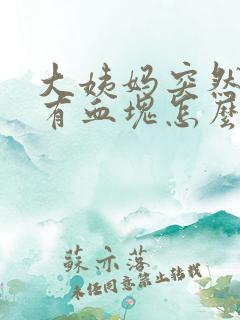 大姨妈突然
有血塊怎麼
蘇亦落
未经同意禁止转载